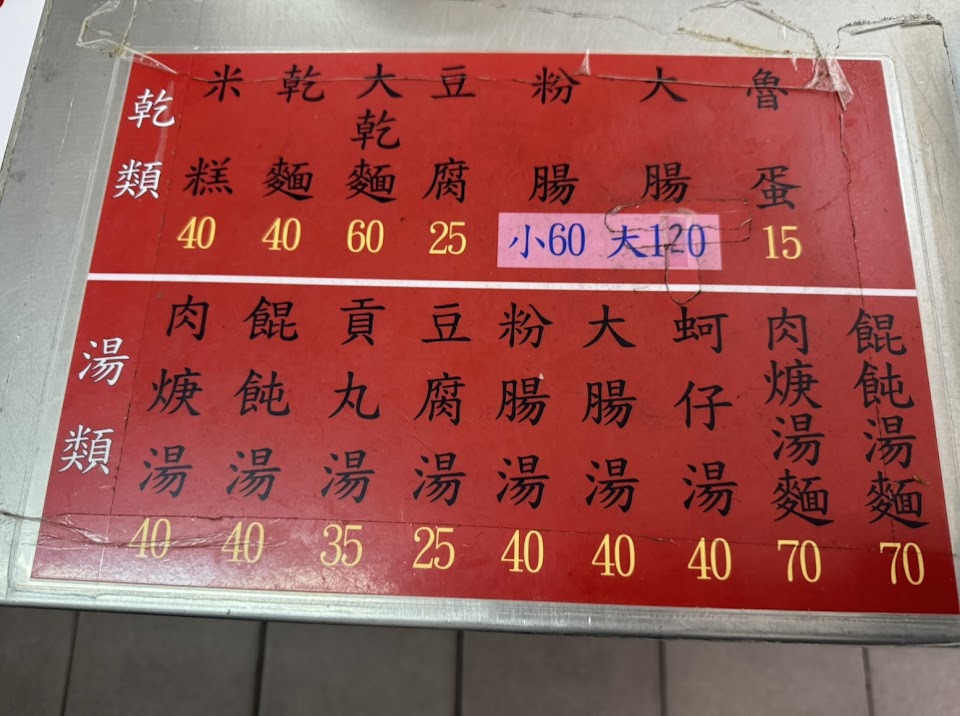 乾類
米糕 40
乾麵 40
大乾麵 60
豆腐 25
粉腸 大腸 小60 大120
魯蛋 15
湯類
肉焿湯 40
餛飩湯 40
貢丸湯 35
豆腐湯 25
粉腸湯 40
大腸湯 40
蚵仔湯 40
肉焿湯麵 70
餛飩湯麵 70